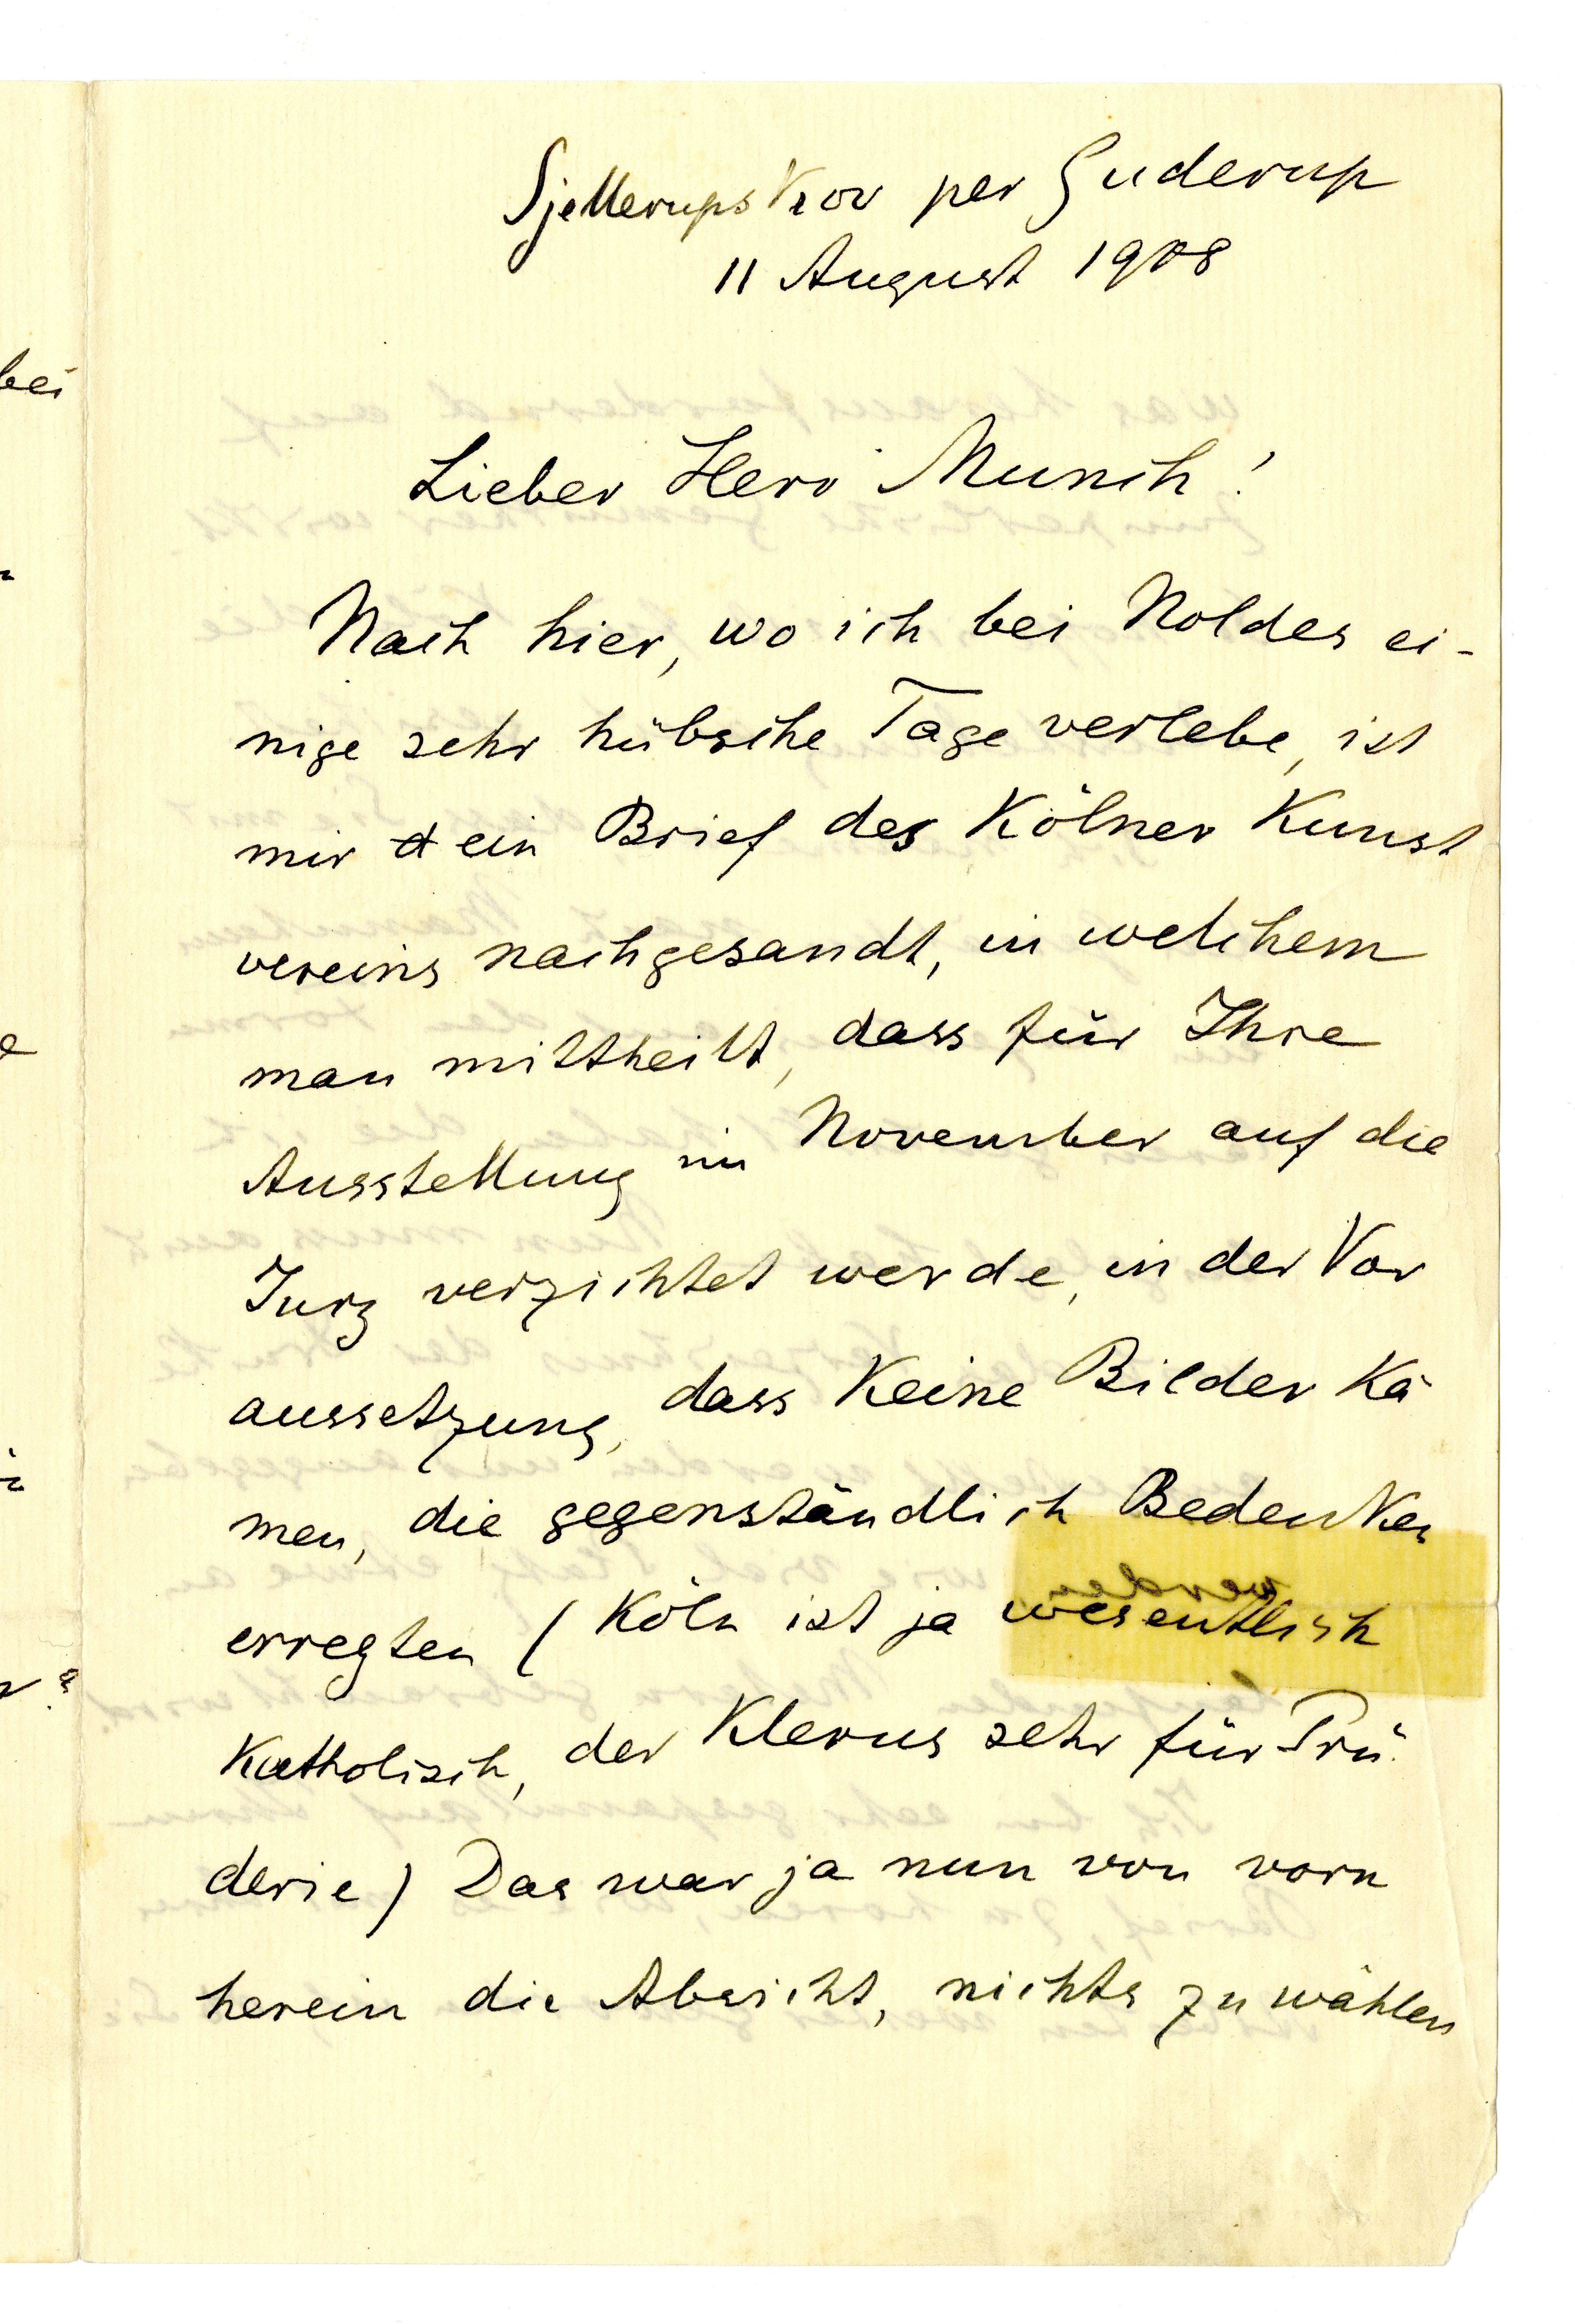 Sjellerupskov per Guderup
11 August 1908
Lieber Herr Munch!
Nach hier, wo ich bei Noldes ei-
nige sehr hübsche Tage verlebe, ist
mir ein Brief des Kölner Kunst
vereins nachgesandt, in welchem
man mittheilt, dass für Ihre
Ausstellung im November auf die
Jury verzichtet werde, in der Vor
aussetzung, dass keine Bilder kä
men, die gegenständlich Bedenken
erregten (Köln ist ja wesentlich
katholisch, der Klerus sehr für Prü
derie) Das war ja nun von vorn
herein die Absicht, nichts zu wählen
bei